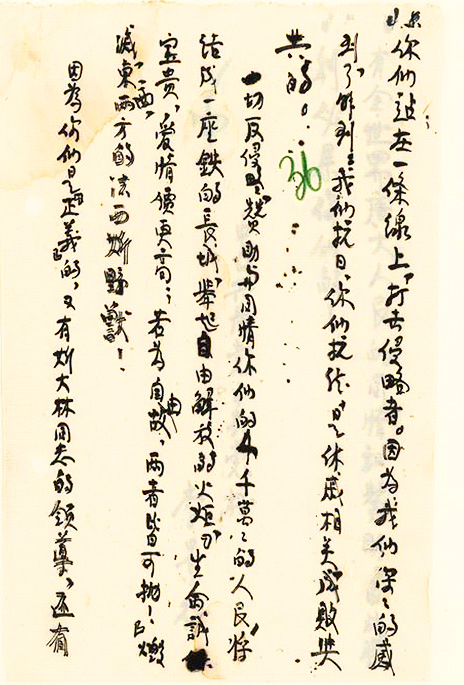 你們站在一條線上,打击侵略者。因為我們深深的感
到了昨到:我們抗日,你們抗德,是休戚相关,成敗與
共的。
一切反侵略,贊助与同情你們的千千萬萬的人民,將
结成一座鉄的長城,舉起自由解放的火炬,“生命誠
宝貴,愛情價更高;若為自由故,兩者皆可抛!”燬
滅東西兩方的法西斯野獸!
因為你們是正義的,又有斯大林同志的領導,还有
36